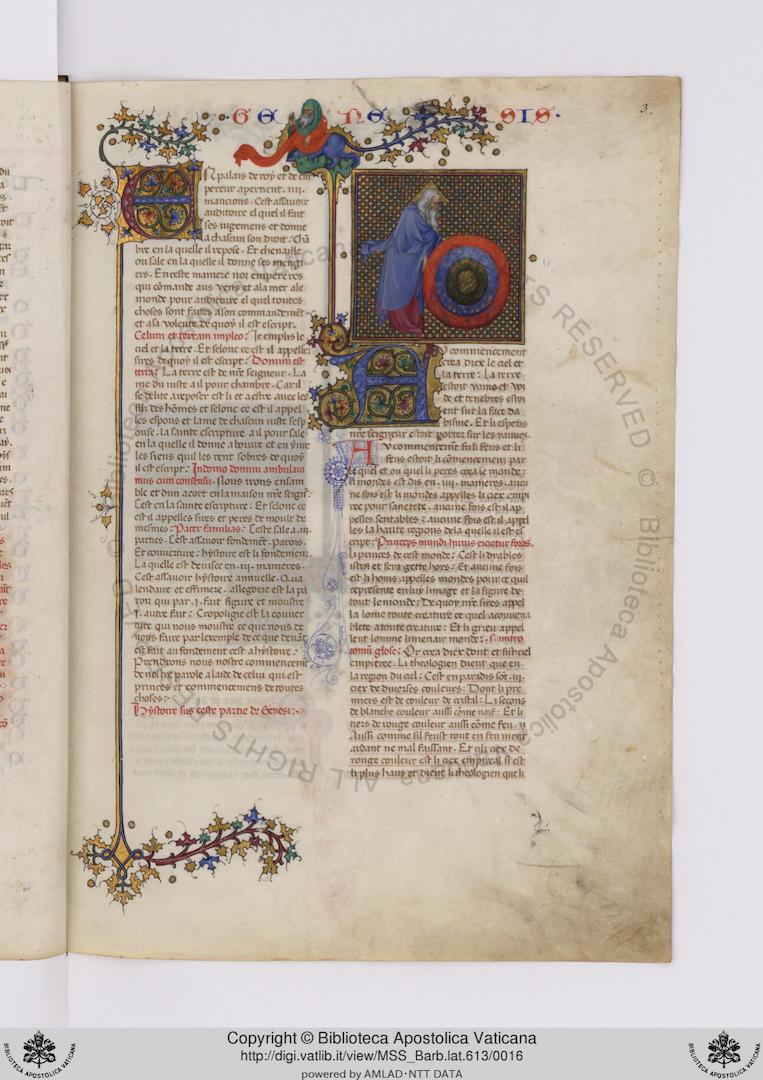 GENESIS
3.
En palais de roy et de em
pereur apernent .iiii.
mancions. Cest assauoir
auditoire el quel il fait
ses iugemens et donne
a chascun son droit. Chā
bre en la quelle il repose. Et
ou sale en la quelle il donne ses mengi
ers. En ceste maniere nos̄ empereres
qui cōmande aus uens et a la mer a le
monde pour auditoire el quel toutes
choses sont faites a son commandemēt
et a sa volente de quoy il est escript.
Celum et terram impleo. Je emplis le
ciel et la terre. Et selonc ce est il appelle
sires de quoy il est escript. Domini est
terra. La terre est de nr̄e seigneur. La
me du iuste a il pour chambre. Car il
se delite a reposer est li et a estre auec les
filz des hōmes et selonc ce est il appel
les espous et lame de chascun iuste sesp
ouse. la sainte escripture a il pour sale
en la quelle il donne a boiure et en
les siens quil les rent sobres de quoy
il est escript. In domo domini ambulaui
mus cum consensu. Nous irons ensam
ble et dun acort en la maison nr̄e seignr̄.
Cest en la sainte escripture. Et selonc ce
est il appelles sires et peres de moult de
mesmes. Pater familias. Ceste sale a .iii.
parties. Cest assauoir fondemēt. parois.
Et couuerture. hystoire est li fondemens
La quelle est deuisee en .iii. manieres.
Cest assauoir hystoire annuelle. Kua
lendaire et effimere. allegorie est la pa
roit qui par .i. fait figure et moustre
.i. autre fait. Tropologie est la couuer
ture qui nous moustre ce que nous de
uons faire par lexemple de ce que deuāt
est fait au fondement cest a hystoire.
Prendrons nous nostre commencemt̄
de nostre parole a laide de celui qui est
princes et commencemens de toutes
choses.
Hystoire sus ceste partie de Genesi.
Au commencement
crea diex le ciel et
la terre. La terre
estoit vaine et voi
de et tenebres estoi
ent sur la face da
bisme. Et li esperis
nr̄e seigneur estoit portez sur les yauues.
Au commencemt̄ fu li fieus et li
fieus estoit li cōmencemens par
le quel et ou quel li peres crea le monde.
li mondes est dis en .iiii. manieres. aucu
ne fois est li mondes appelles li ciex empi
ree pour sa netete. aucune fois est il ap
pelles sentables. aucune fois est il appel
les la haute regions de la quelle il est es
cript. Princeps mundi huius eicietur foras.
li princes de cest monde. Cest li dyables
istra et sera gette hors. Et aucune fois
est li homs appelles mondes pour ce quil
represente en lui limage et la figure de
tout le monde. De quoy nr̄e sires appel
la lome toute creature ce quel a conuena
blete a toute creature. Et li grieu appel
lent lomme li menair monde.
Or crea diex dont et fist ciel
empiree. Li theologien dient que en
la region du ciel. Cest en paradis sōt .iii.
ciex de diuerses couleurs. Dont li pre
miers est de couleur de cristal. Li secons
de blanche couleur aussi cōme noif. Et li
tiers de rouge couleur aussi cōme feu.
Aussi comme sil feust tout en feu mens
ardant ne mal faissant. Et cilz ciex de
rouge couleur est li ciex empireal si est
li plus haus et dient li theologien que li
Copyright © Biblioteca Apostolica Vaticana
http://digi.vatlib.it/view/MSS_Barb.lat.613/0016
powered by AMLAD·NTT DATA
BIBLIOTECA APOSTOLICA VATICANA
BIBLIOTECA APOSTOLICA VATICANA